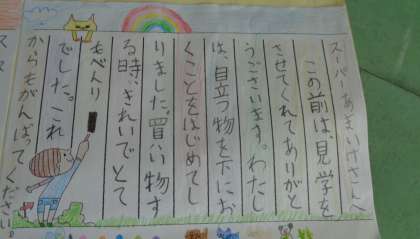 スーパーあまいけさんへ
この前は、見学を
させてくれてありがと
うございます。わたし
は、目立つ物を下にお
くことをはじめてし
りました。買い物す
る時、きれいでとて
もべんり
でした。これ
からもがんばってください。